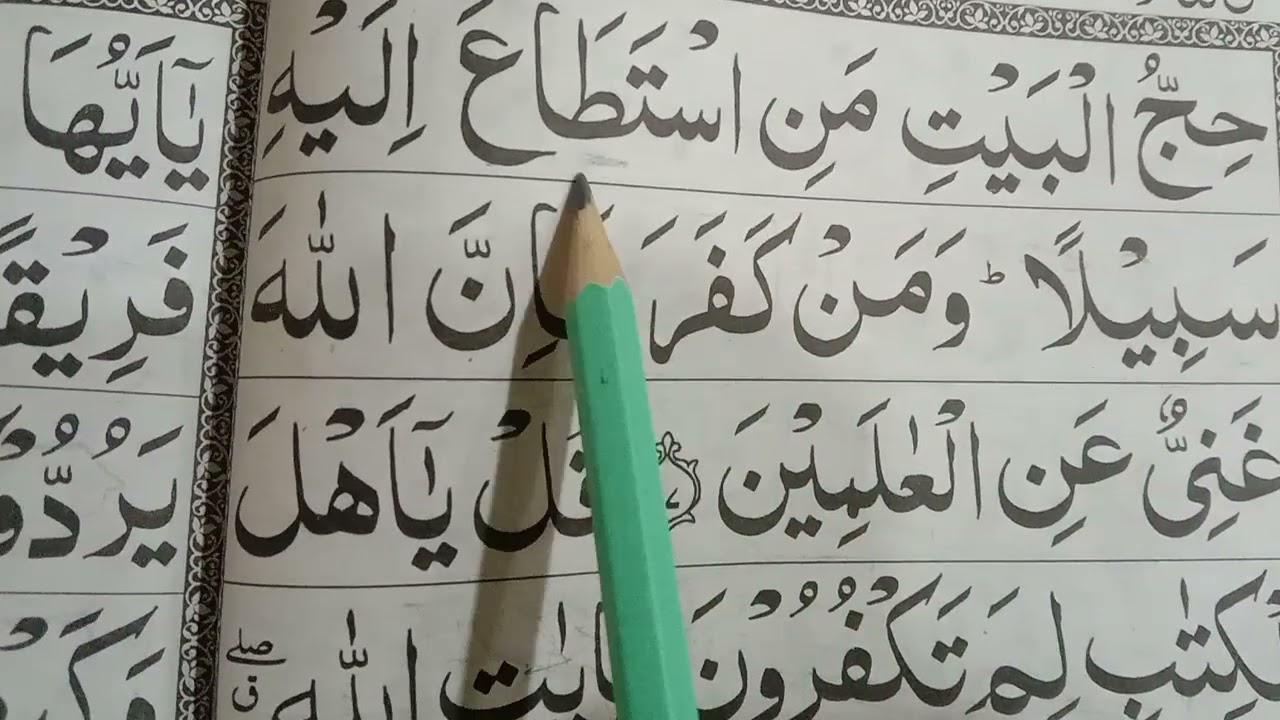 حِجُّ الْبَيْتِ مَنِ اسْتَطَاعَ اِلَيْهِ
سَبِيْلًا ؕ وَمَنْ كَفَرَ اِنَّ اللّٰهَ
غَنِىٌّ عَنِ الْعٰلَمِيْنَ قُلْ يٰۤاَهْلَ
الْكِتٰبِ لِمَ تَكْفُرُوْنَ بِاٰيٰتِ اللّٰهِ ۖق
يٰۤاَيُّهَا
فَرِيْقًا
يَرُدُّو
وَكَ